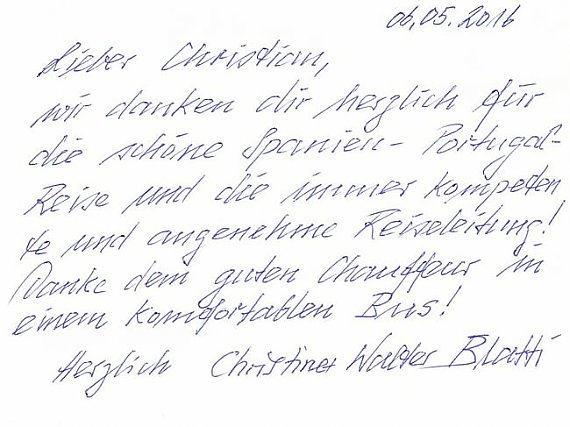 06.05.2016
Lieber Christian,
wir danken dir herzlich für
die schöne Spanien- Portugal-
Reise und die immer kompeten
te und angenehme Reiseleitung!
Danke dem guten Chauffeur in
einem komfortablen Bus!
Herzlich Christine+ Walter Blatti